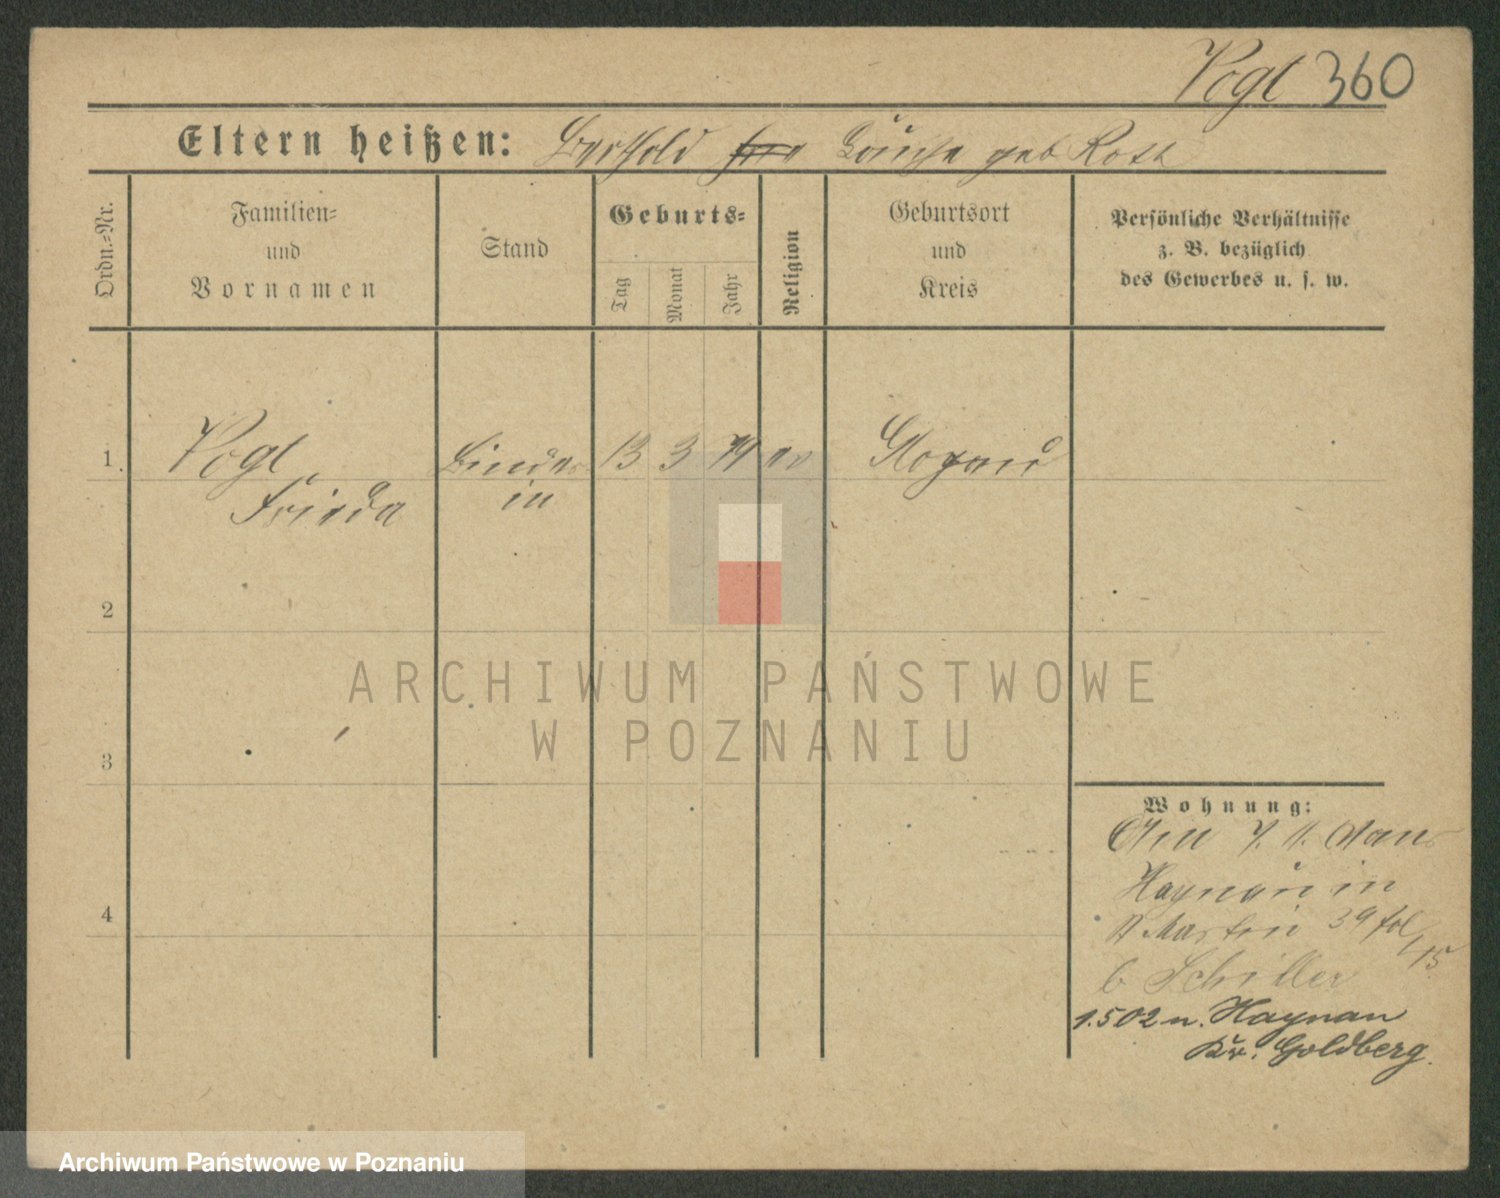 Vogt 360
Eltern heißen: Berthold Louise geb Roth
Ordn.-Nr.
Familien-
und
Vornamen
Stand
Geburts-
Tag
Monat
Jahr
Religion
Geburtsort
und
Kreis
Persönliche Verhältnisse
z. B. bezüglich
des Gewerbes u. s. w.
1 Vogt Binder 13 3 79 ev Glogau
Frieda in
2
3
4
Wohnung:
Haynau in
St Martin 39
b Schiller
1.502 n. Haynau
Kr. Goldberg.
ARCHIWUM PAŃSTWOWE
W POZNANIU
Archiwum Państwowe w Poznaniu